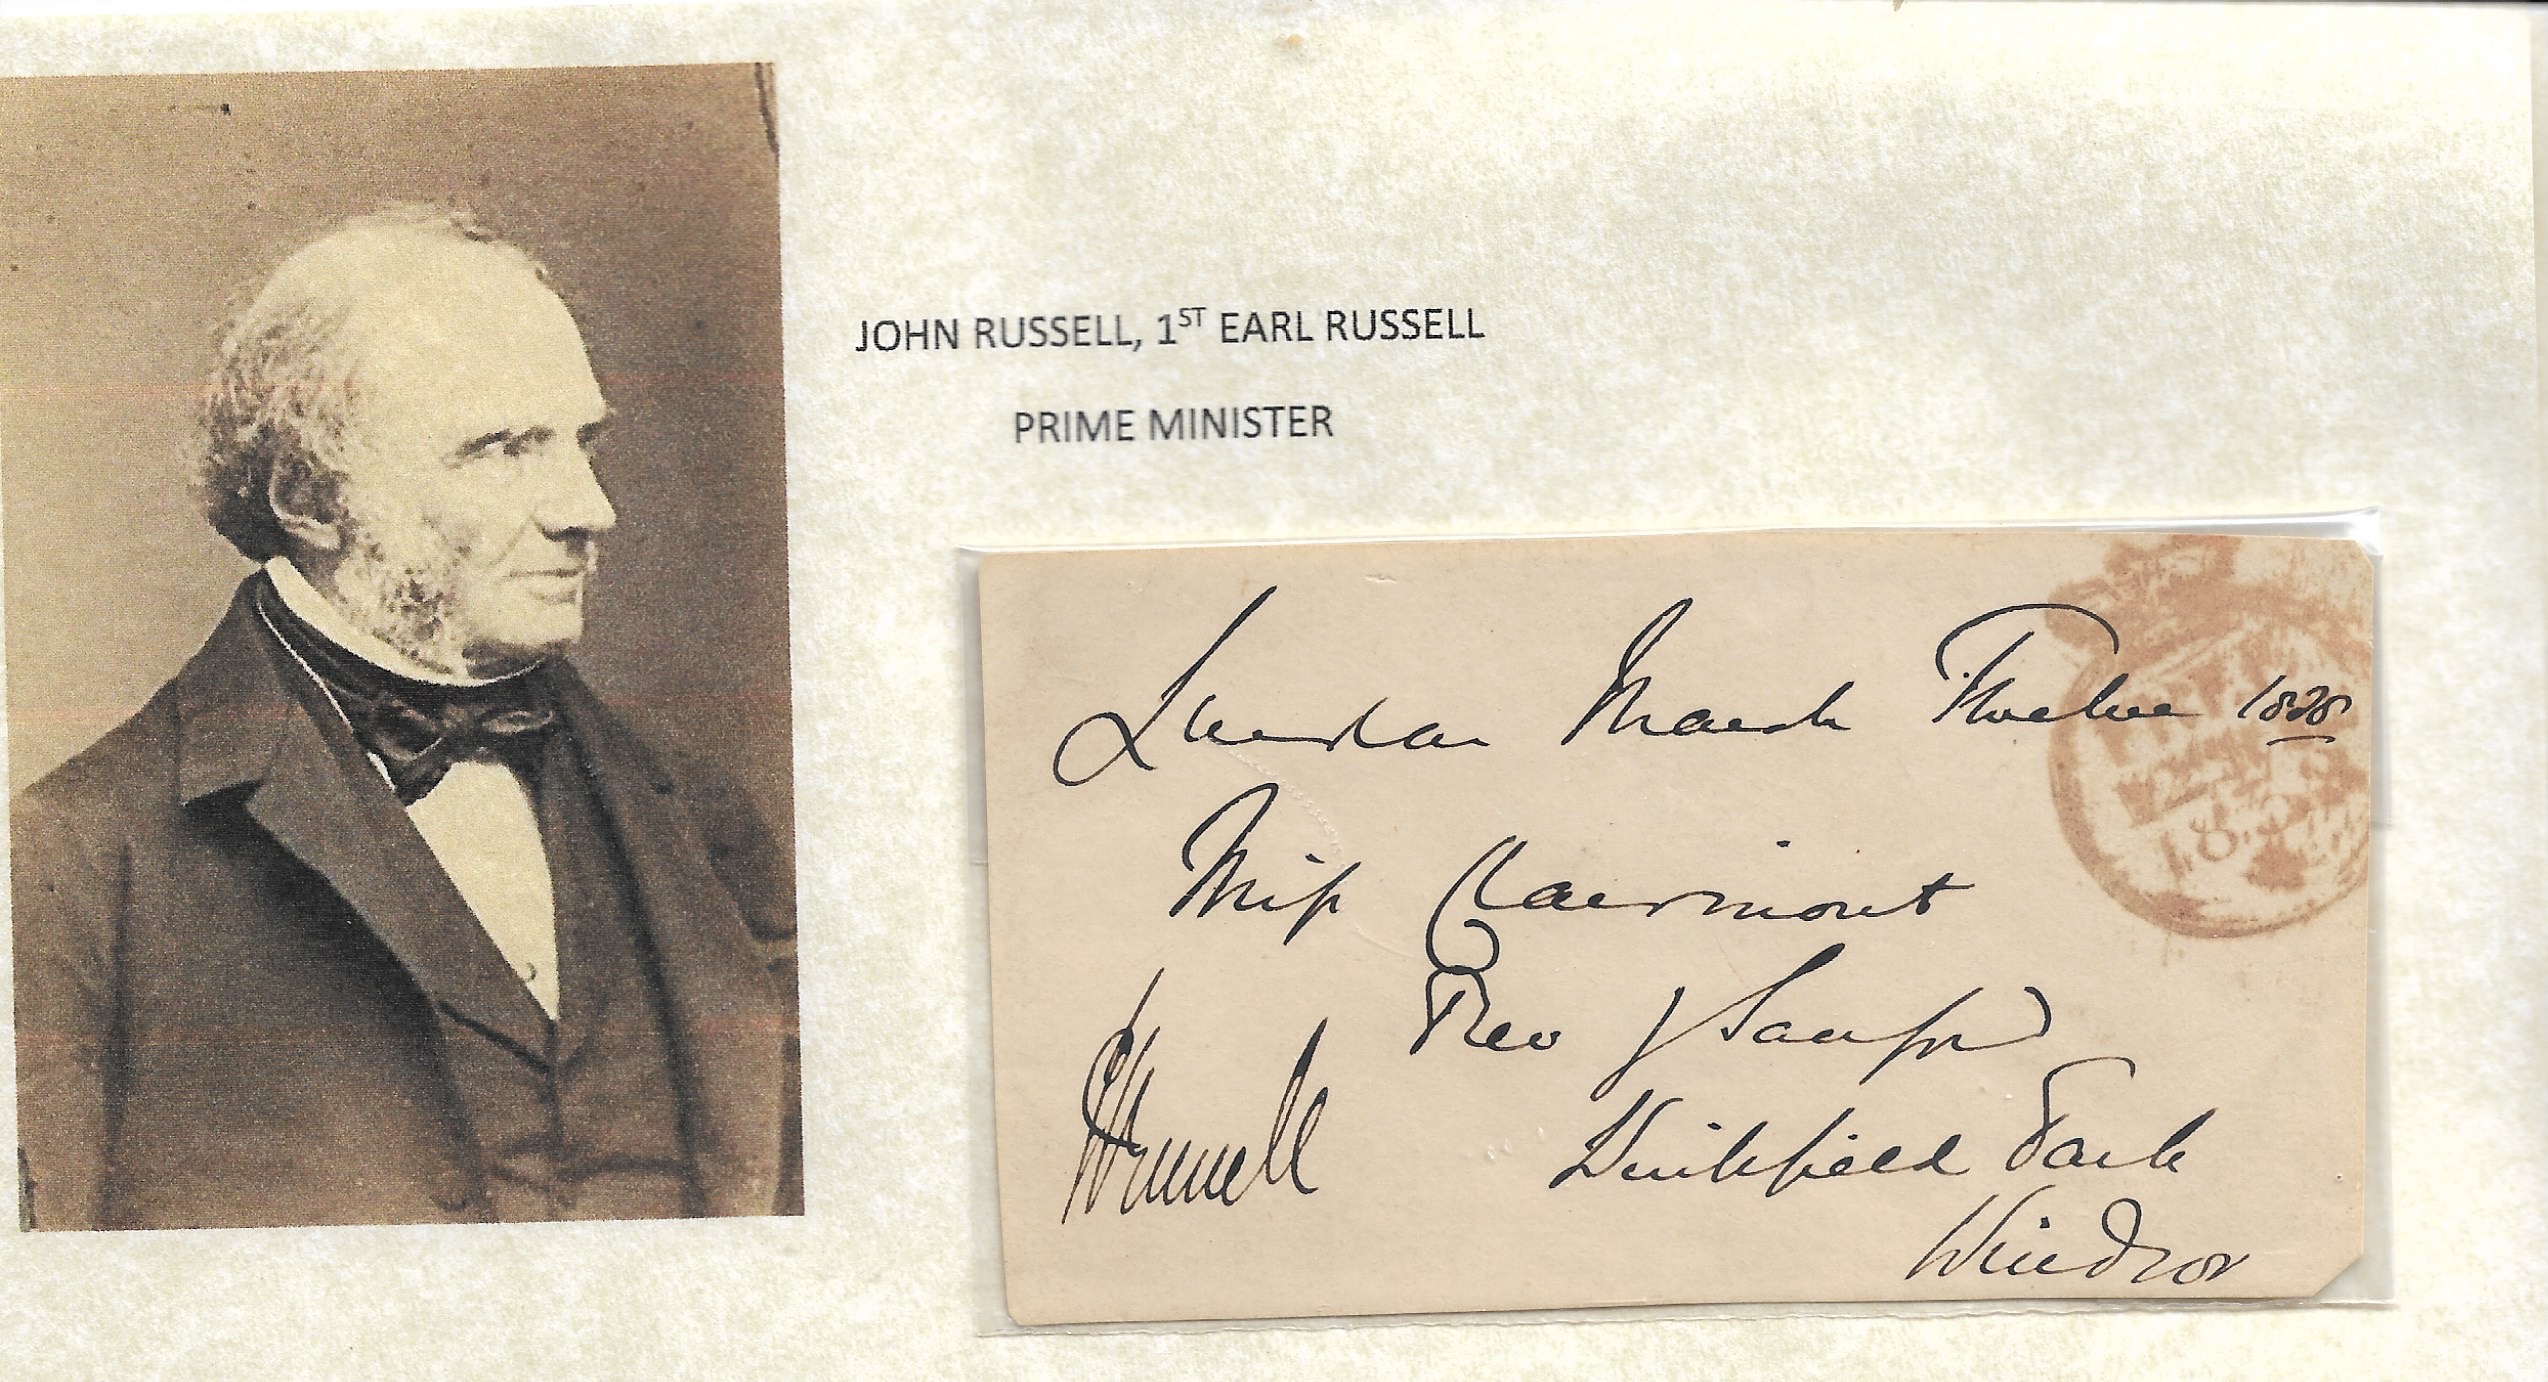 JOHN RUSSELL, 1ST EARL RUSSELL
PRIME MINISTER
London March Twelve 1828
Miss Clairmont
Rev J Sanford
Park
Windsor
JRussell
FREE
1828